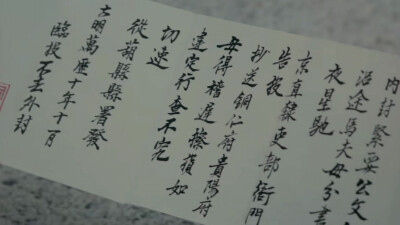 内封緊要公文
沿途馬夫毋分晝
夜星馳
京直隸吏部衙門
告投
抄送銅仁府貴陽府
毋得稽遲擦損如
違定行查不完
切速
從葫縣縣署發
大明萬歷十年十一月
臨投不去外封